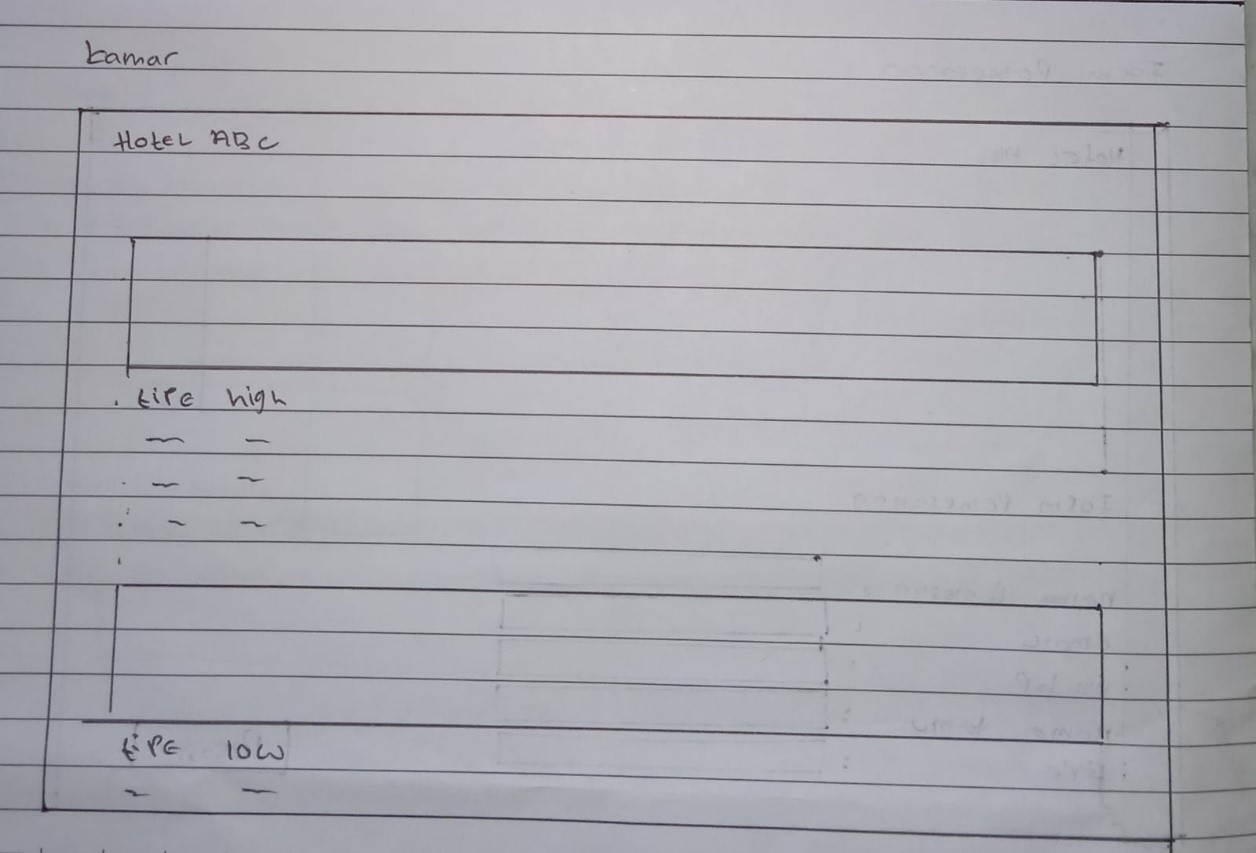 kamar
Hotel ABC
. tipe high
tipe low